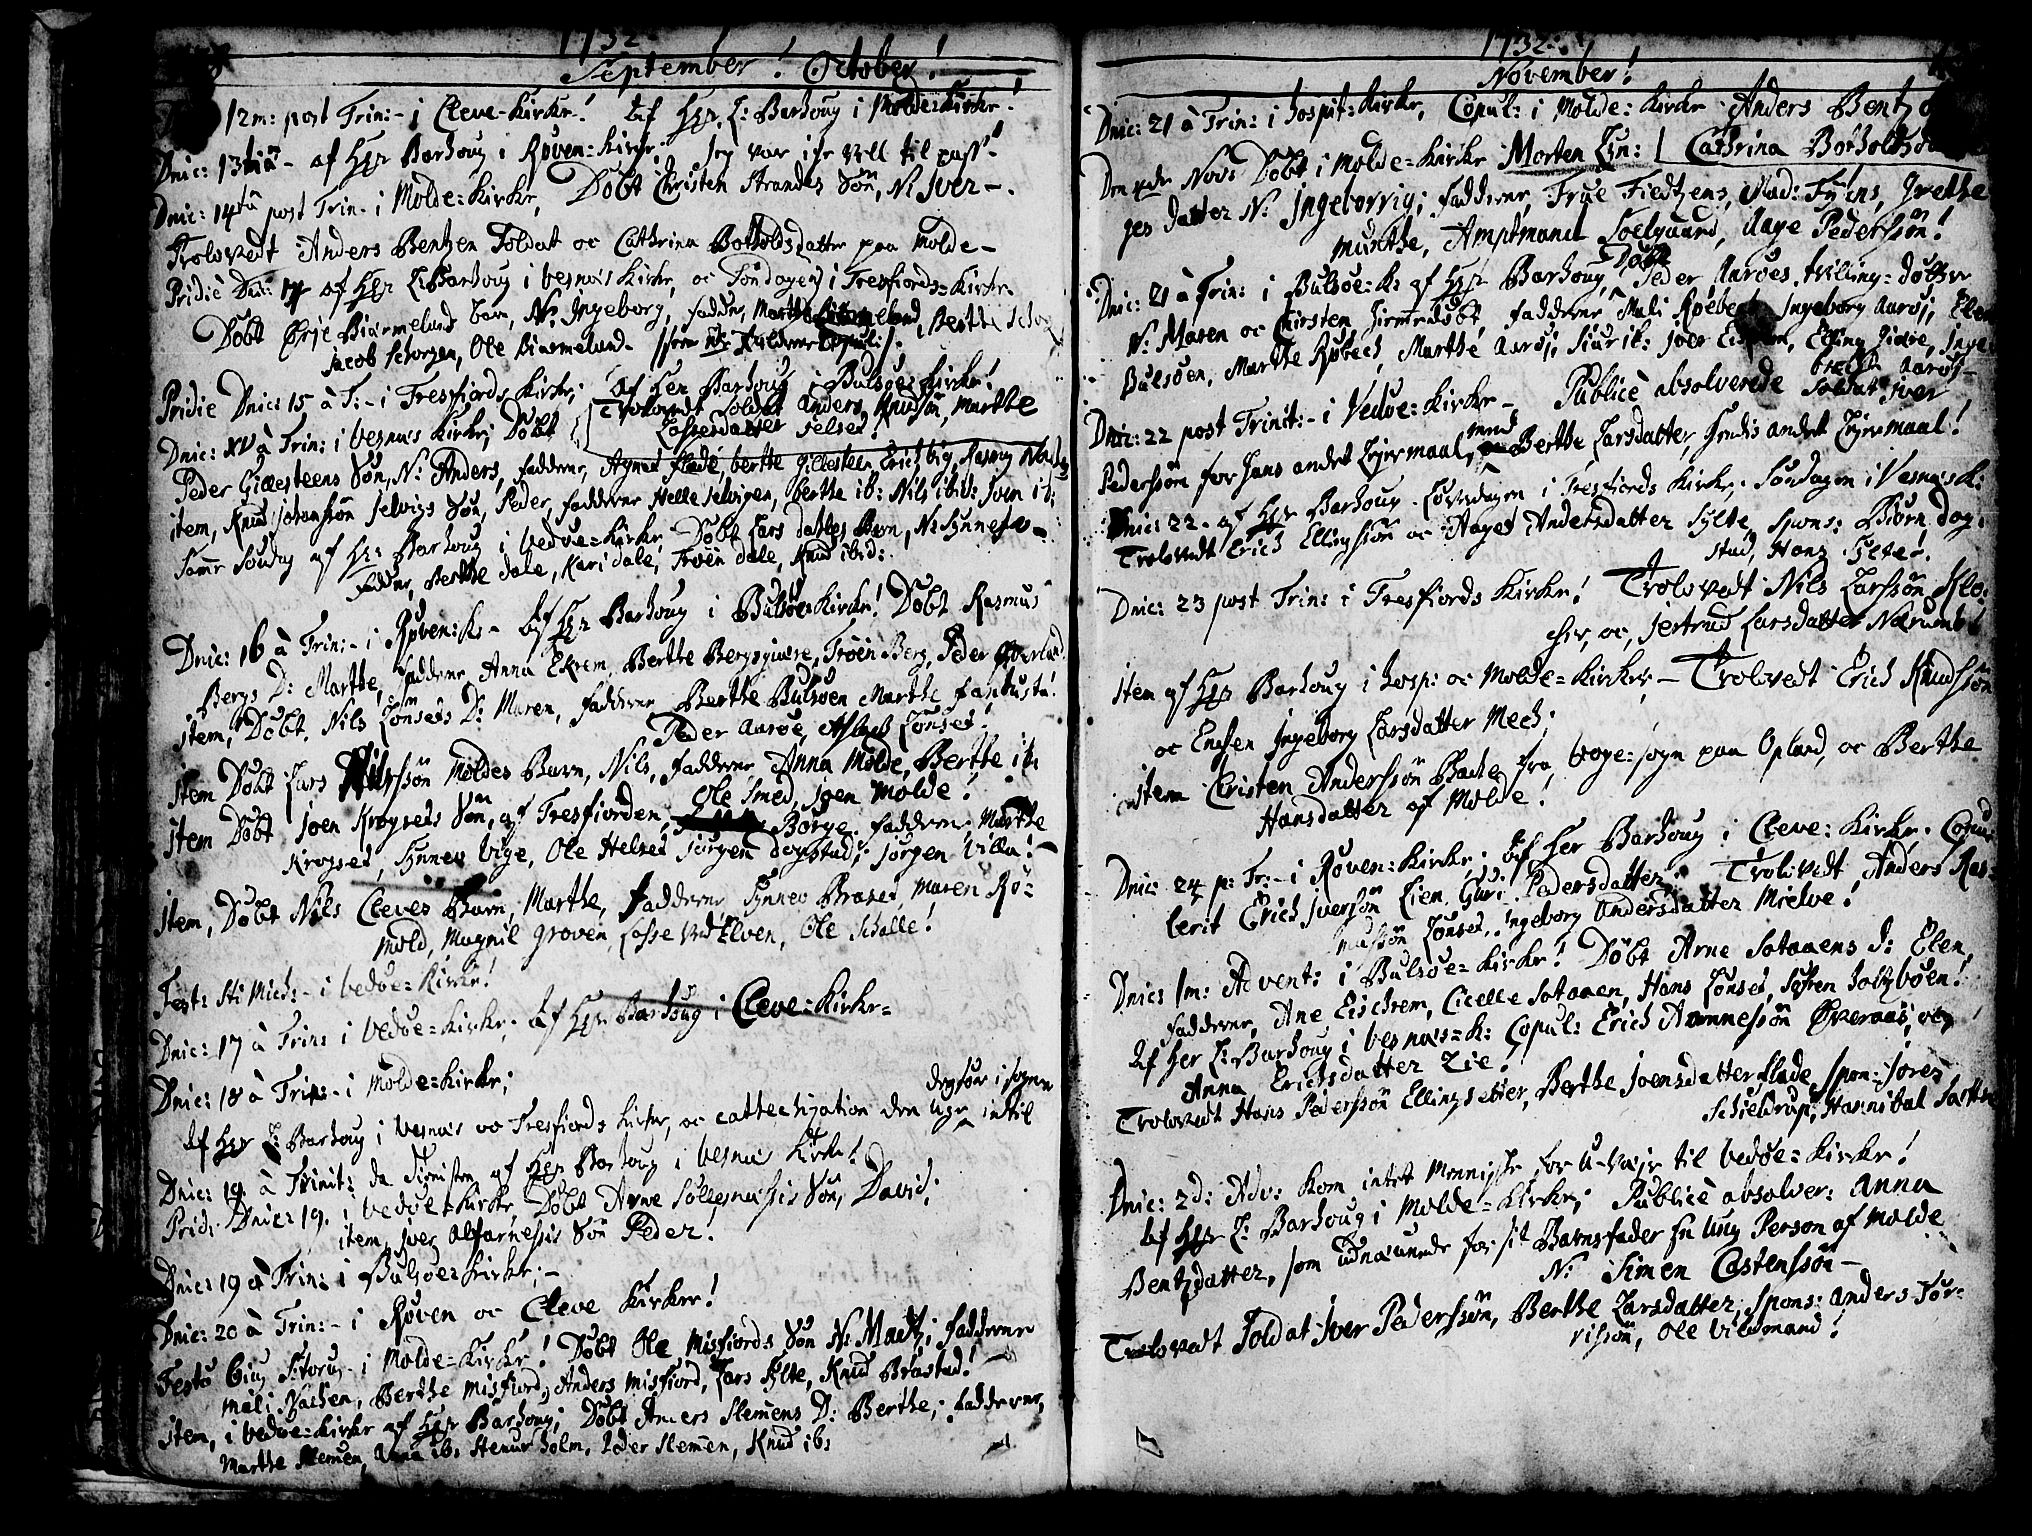 1732
September! October!
12m: post Trin:- i Cleve-Kirke! Af Hr. L: Barhoug i Molde=Kirke!
Dnic: 13tia- af Hr Barhoug i Røven=Kirke; Jeg var ikke vell til pass!
Dnic: 14ta post Trin- i Molde=Kirke, Døbt Christen Strandes Søn, N. Iver-.
Trolovedt Anders Bentzen Soldat oc Cathrina Botholdsdatter paa Molde-
Pridie Dnic: af Hr L:Barhoug i Vesnæs Kirke, oc Søndagen i Tresfiords=Kirke
Døbt Biærmeland barn, N. Ingeborg, faddr, Marthe Biermeland, Berthe
Jacob Schorgen, Ole Biermeland-
Pridie Dnic: 15 à T:- i Tresfiords Kirke; af Her Barhoug i Bulsøe=Kirke!
Dnic: XV à Trin: i Vesnæs Kirke; Døbt Trolovedt Soldat Anders Knudsøn, Marthe
Peder Gillesteens Søn, N: Anders, faddrne, Agnes flade, berthe Gillesteen, Erich Vig, Rasmus
item, Knud Johanssøn Selvigs Søn, Peder, faddrne Helle Selvigen, berthe ib: Nils ibid: Sven ib:
Samme Søndag af Hr Barhoug i Vedøe=Kirke Døbt Lars dahles Barn, N: Synneve-
faddrne, Berthe dale, Kari dale, Troen dale, Knud ibid:
Dnic: 16 à Trin:- i Røven:K:- Af Hr Barhoug i Bulsøe=Kirke! Døbt Rasmus
Bergs D: Marthe, faddrne Anna Ekrem, Berthe Bergsgiære, Troen Berg, Peder
item, Døbt, Nils Lønsets D: Maren, faddrne Berthe Bulsøen Marthe
Peder Aarøe, Lønset!
item Døbt Lars Nilssøn Moldes Barn, Nils, faddrne, Anna Molde, Berthe ib:
Ole Smed, Joen Molde!
item Døbt Joen Krogsets Søn, af Tresfiorden, Børge. faddrne, Marthe
Krogset, Synnev Vige, Ole Helset Jørgen Dogstad, Jørgen Villa!-
item, Døbt Nils Cleves Barn, Marthe, faddrne, Synnev Braset, Maren Rø=
mold, Magnil Groven, Lasse ved Elven, Ole Schalle!
Fest: Sti Mich:- i Vedøe=Kirke!
Dnic: 17 à Trin: i Vedøe=Kirke; Af Hr Barhoug i Cleve=Kirke=
Dnic: 18 à Trin:- i Molde=Kirke;
Af Hr L: Barhoug i Vesnæs oc Tresfiords Kirke, oc cattechization den Uge indtil
Dnic: 19 à Trinit: da Tienisten af Hr Barhoug i Vesnæs Kirke!
Prid: Dnic: 19. i Vedøe=Kirke, Døbt Arne Søllesnæssis Søn, David;
item, Iver Alfarnessis Søn Peder!
Dnic: 19 à Trin: i Bulsøe=Kirke;-
Dnic: 20 à Trin:- i Røven oc Cleve Kirker!
Festo i Molde=Kirke! Døbt Ole Misfiords Søn N: Madtz; faddrne
Mali Nachen, Berthe Misfiord, Anders Misfiord, Lars Sylte, Knud Brastad!
item, i Vedøe=Kirke af Hr Barhoug; Døbt Anders Slemens D: Berthe; faddrne,
Marthe Slemen, Anna ib: Holm, Peder Slemen, Knud ib:
1732
November!
Dnic: 21 à Trin: i Hospit:Kirke, Copul: i Molde=Kirke Anders Bentz
Cathrina Botholdsd
Den Nov: Døbt i Molde=Kirke Morten Lin:
ges datter N: Ingeborrig; faddrne, Frue Fiedtzens, Mad: Fylens, Grethe
Munthe, Amptmand Soelgaard, Aage Pederssøn!
Dnic: 21 à Trin: i Bulsøe:K: af Hr Barhoug, Døbt Peder Aarøes tvilling=døttre
N: Maren oc Kirsten, Hiemmedøbt, faddrne Mali Røbech Ingeborg Aarøe, Elen
Bulsøen, Marthe Røbech, Marthe Aarøe, Siur ib: Joen Elling Giære, Inge
Dnic: 22 post Trinit:- i Vedøe=Kirke- Publicè absolverede Soldat Iver
Pederssøn for hans andet Leyermaal, med Berthe Larsdatter, hendis andet Leyermaal!
Dnic: 22- af Hr Barhoug Løverdagen i Tresfiords Kirke; Søndagen i Vesnæs:K:
Trolovedt Erich Ellingssøn oc Aaget Andersdatter Sylte, Spons: Biørn Dag:
stad, Hans Sylte!
Dnic: 23 post Trin: i Tresfiords Kirke! Trolovedt Nils Larssøn Klo:
cher, oc, Jertrud Larsdatter Nærumb!
item af Hr Barhoug i Hosp: oc Molde=Kirke,- Trolovedt Erich Knudssøn
oc Enchen Ingeborg Larsdatter Mech;
item Christen Anderssøn Bache fra, Voge=sogn paa Opland, oc Berthe
Hansdatter af Molde!
Dnic: 24 p: Tr:- i Røven=Kirke; Af Her Barhoug i Cleve=Kirke. Copu=
lerit Erich Iversøn Lien, Guri Pedersdatter Trolovedt Anders Ras=
mussøn Lønset, Ingeborg Andersdatter Mielve!
Dnic: 1m: Advent: i Bulsøe=Kirke! Døbt Arne Sotnaens D: Elen,
faddrne, Ane Eichrem, Cicelle Sotnaen, Hans Lønset, Søfren
Af Her L: Barhoug i Vesnæs=K: Copul: Erich Aamnessøn Øveraas, oc,
Anna Erichsdatter Lie!
Trolovedt Hans Pederssøn Ellingsetter, Berthe Joensdatter flade, Spon: Søres
Schieldrup, Hannibal
Dnic: 2d: Adv: Kom intet Menniske for U-Vejr til Vedøe=Kirke!
Af Hr L: Barhoug i Molde=Kirke; Publicè absolver: Anna
Bentzdatter, som udnæunede for sit Barnsfader En Ung Person af Molde
N: Simen Castenssøn-
Trolovedt Soldat Iver Pederssøn, Berthe Larsdatter, Spons: Anders Tor=
rissøn, Ole Vildmand!